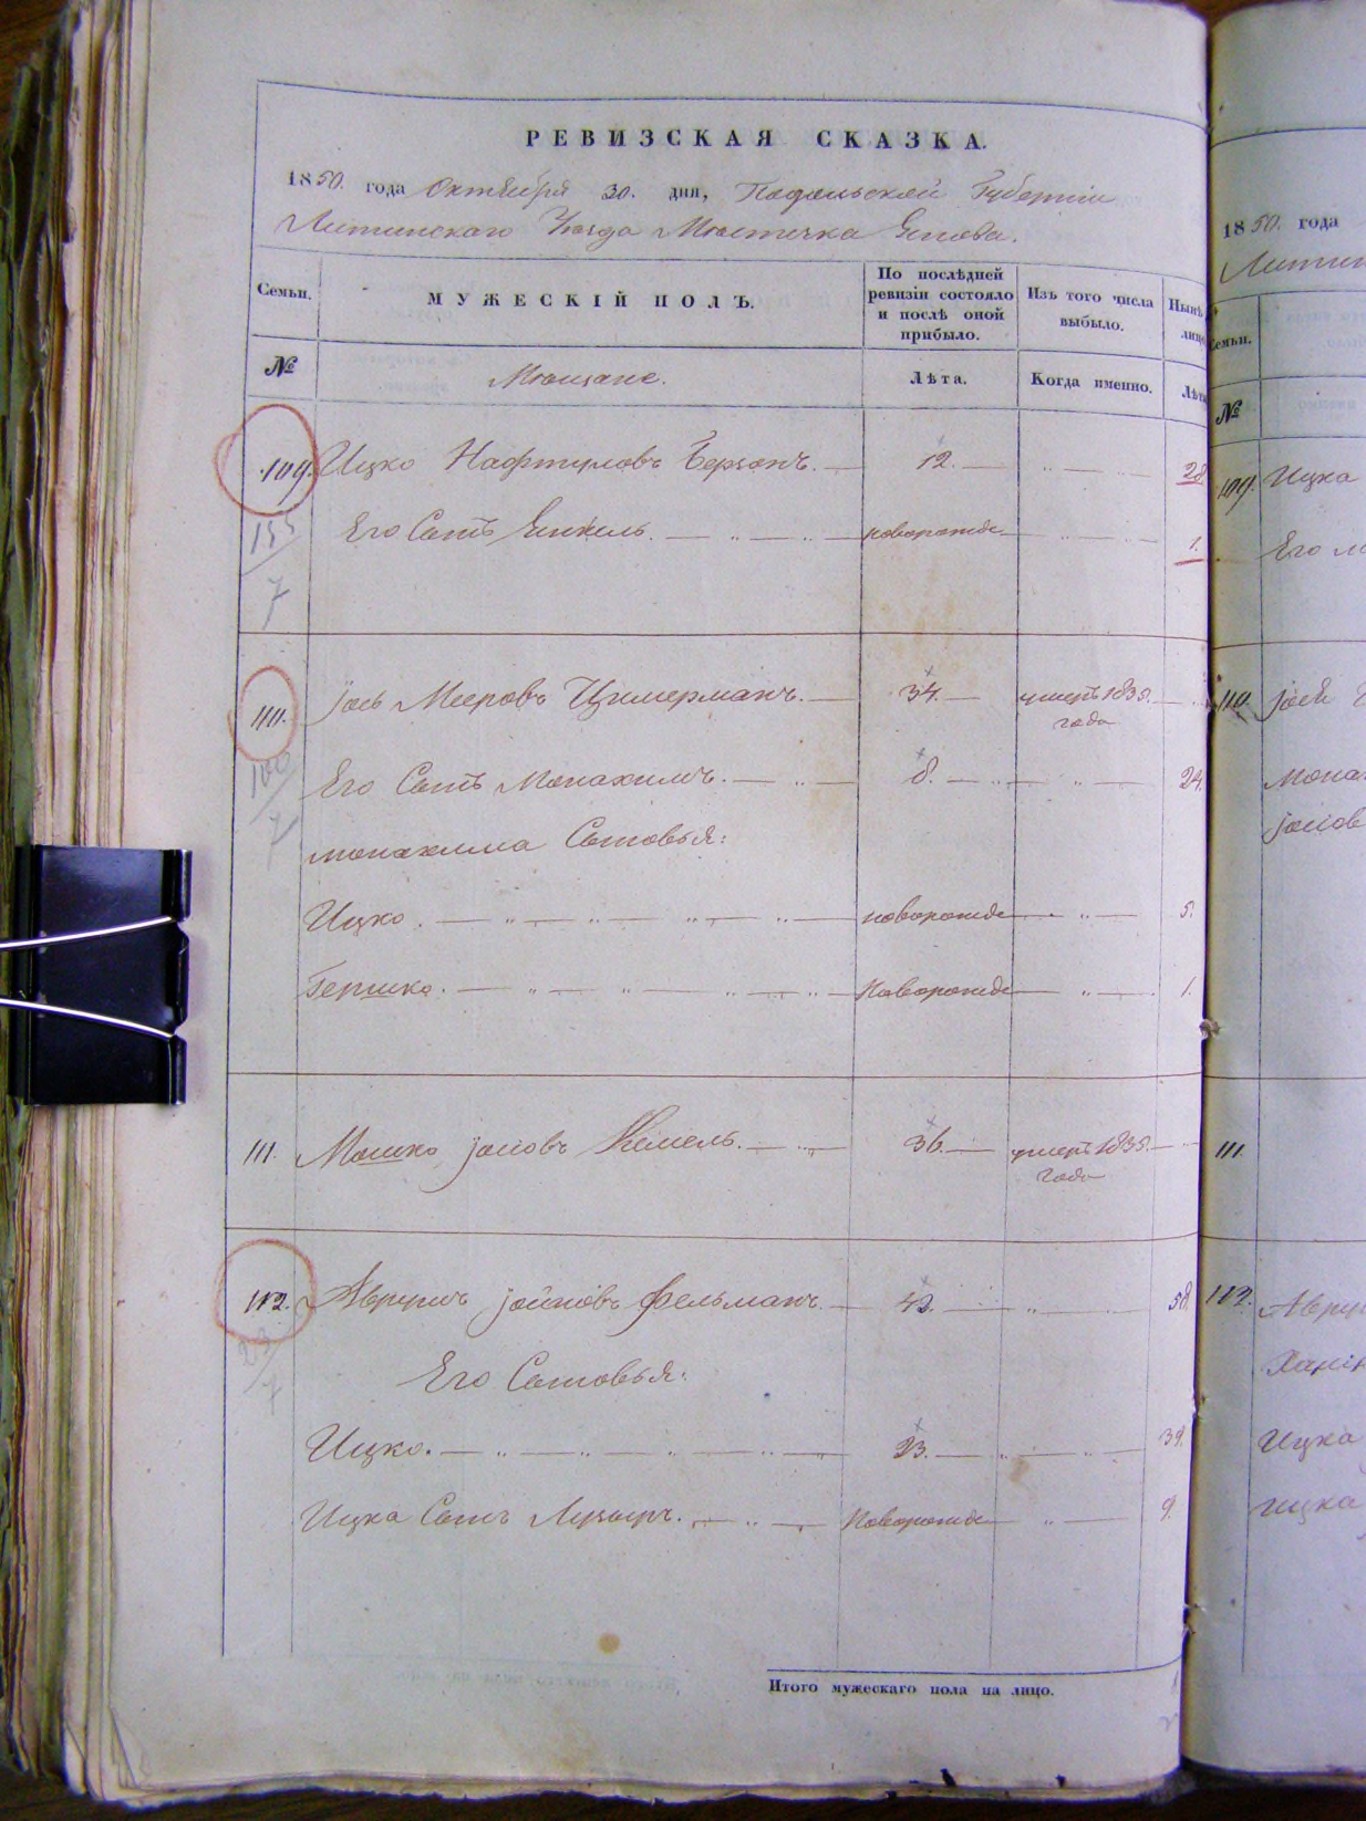 РЕВИЗСКАЯ СКАЗКА.
1850. года Октября 30. дня, Подольской Губернiи
Литинскаго Уѣзда Мѣстечка Янова.
Семьи. МУЖЕСКIЙ ПОЛЪ. По послѣдней ревизiи состояло и послѣ оной прибыло. Изъ того числа выбыло. Нынѣ лицо
№ Мѣщане. Лѣта. Когда именно. Лѣта
109. Ицко Нафтуловъ Берзонъ. 12. 28
155/7 Его Сынъ Янкель. новорожде 1.
110. Iось Мееровъ Цимерманъ. 34. умеръ 1835. года
100/7 Его Сынъ Монахимъ. 8. 24.
Монахима Сыновья:
Ицко. новорожде 5.
Гершко. Новорожде 1.
111. Мошко Iосiовъ 36. умеръ 1835. года
112. Аврумъ Iойновъ Фельманъ. 42. 58.
23/7 Его Сыновья:
Ицко. 23. 39.
Ицка Сынъ Лузыръ. Новорожде 9.
Итого мужескаго пола на лицо.
1850. года
Литин
Семьи.
№
109. Ицка
Его
110. Iося
Мона
Iосiов
111.
112. Авру
Ицка
Ицка